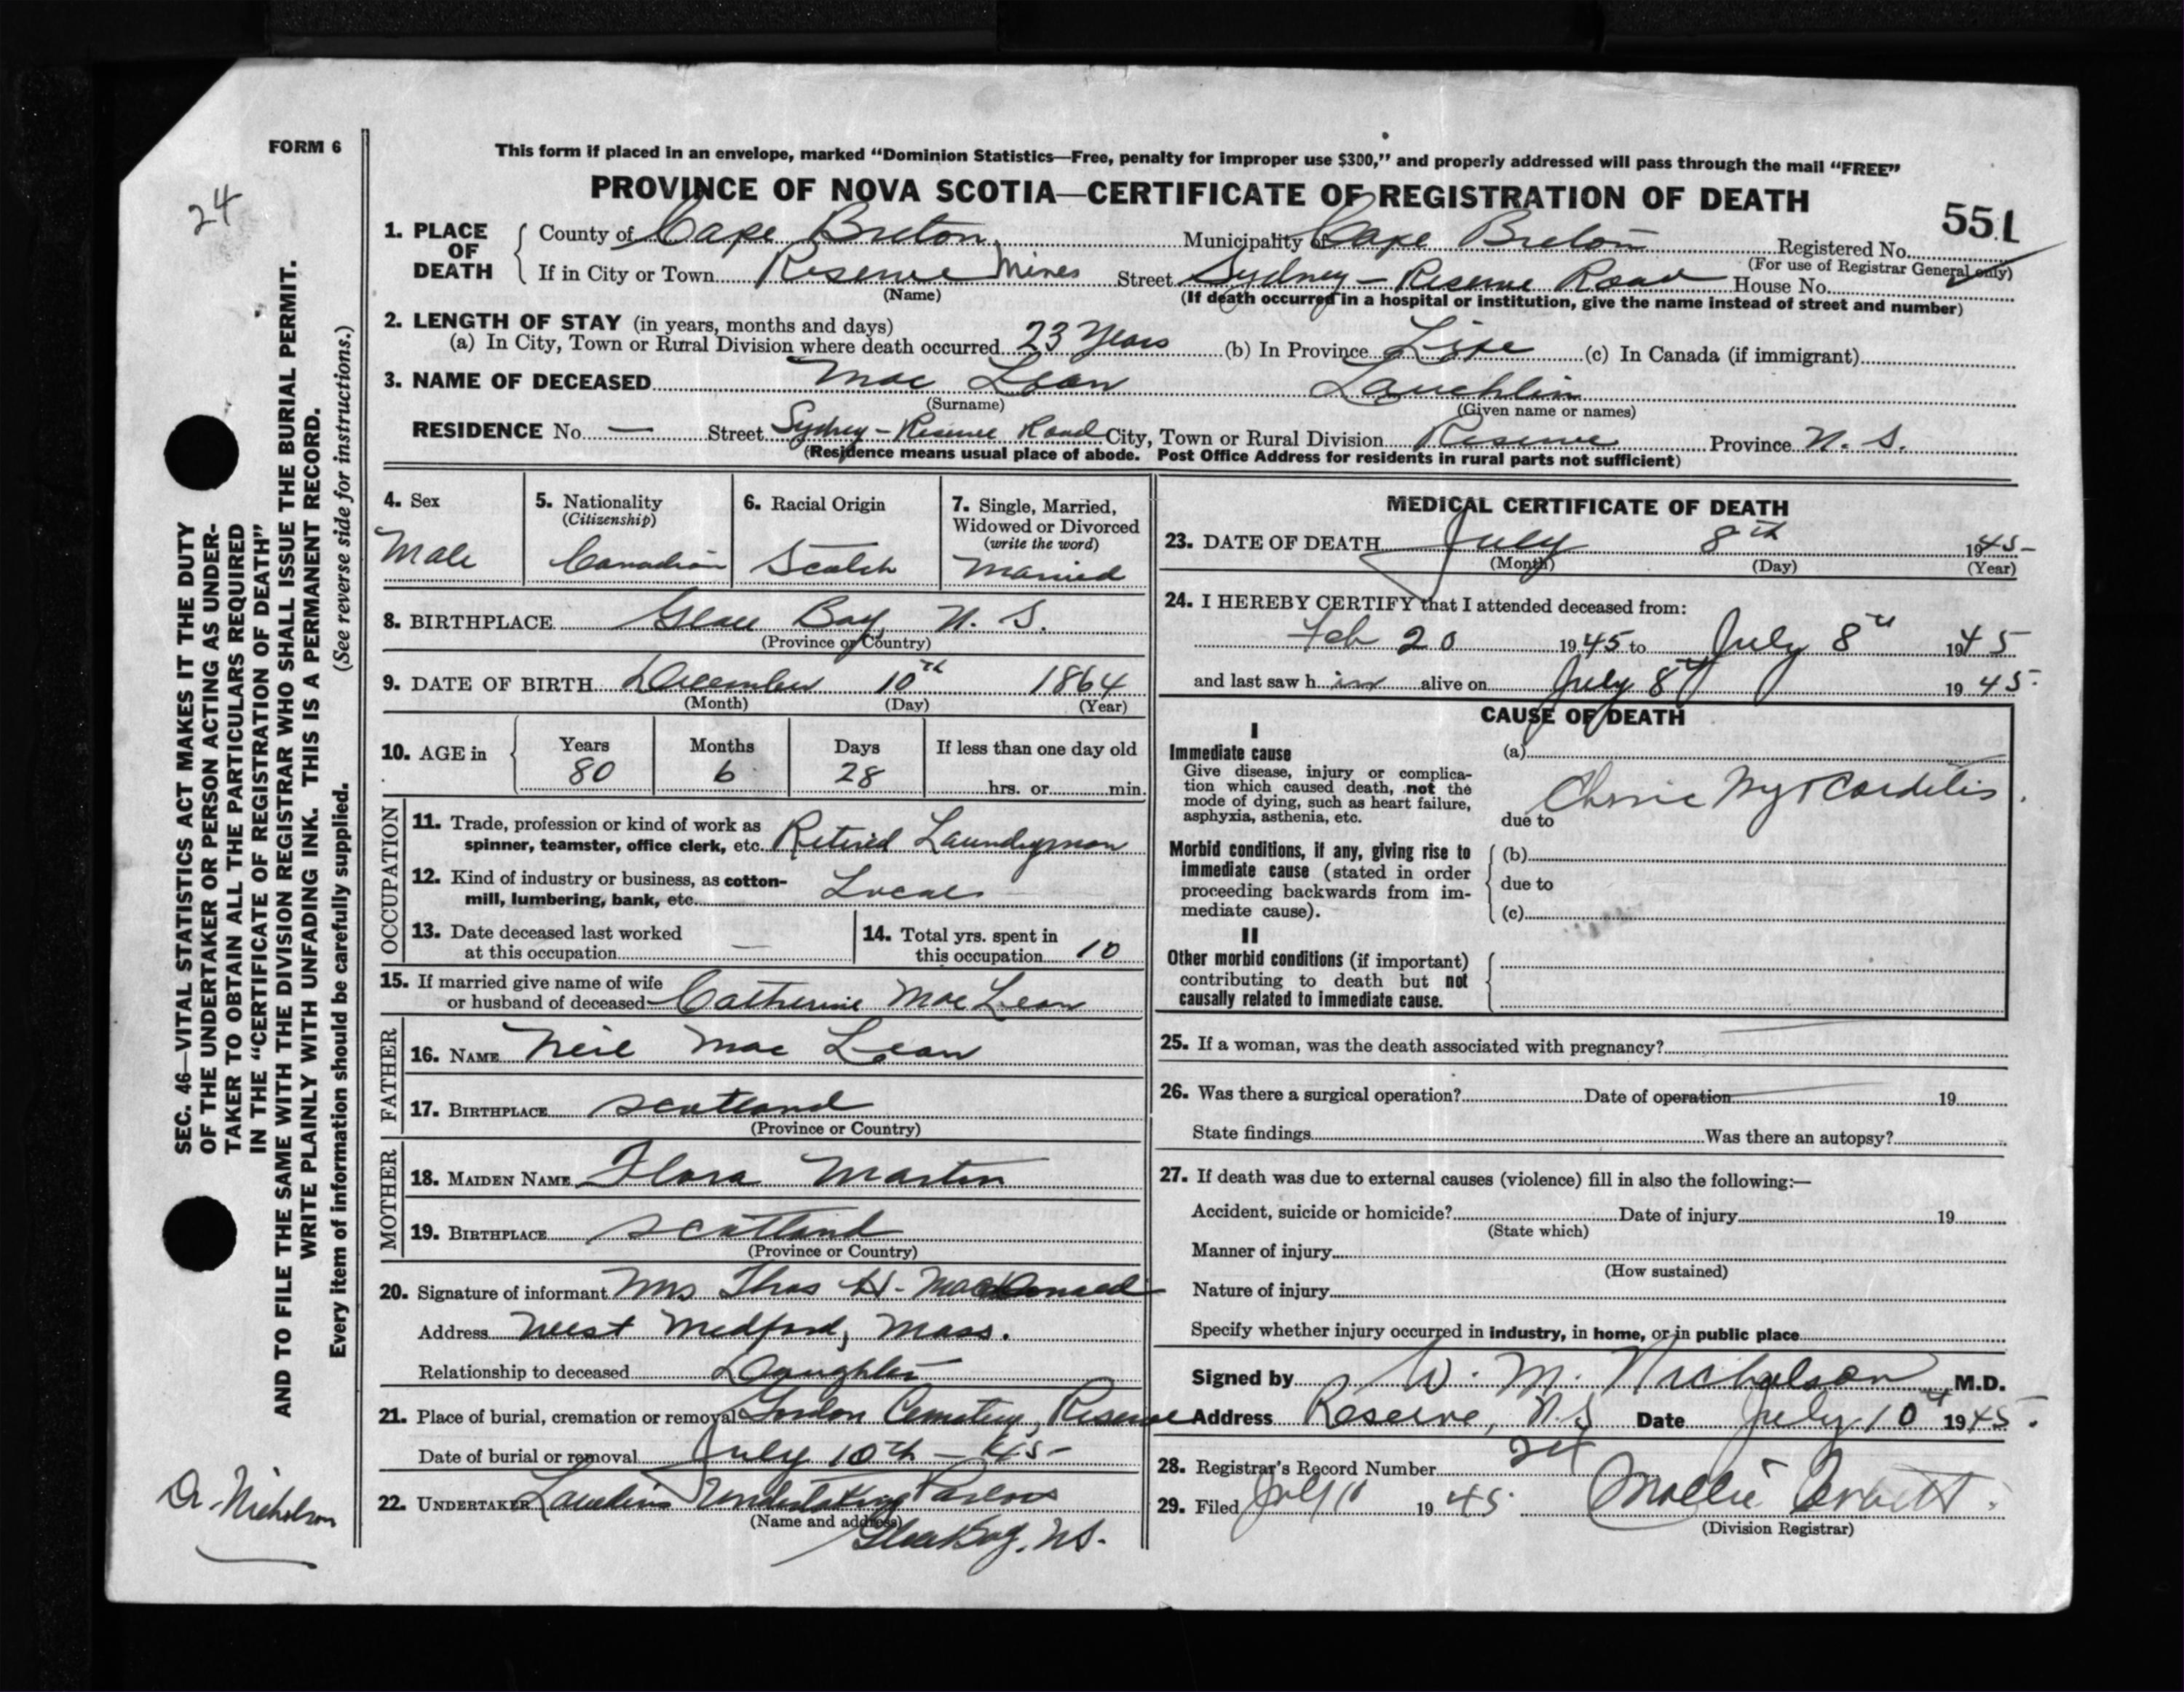 FORM 6
24
This form if placed in an envelope, marked "Dominion Statistics—Free, penalty for improper use $300," and properly addressed will pass through the mail "FREE"
PROVINCE OF NOVA SCOTIA—CERTIFICATE OF REGISTRATION OF DEATH
551
1. PLACE OF DEATH
County of Cape Breton Municipality of Cape Breton Registered No.
(For use of Registrar General only)
If in City or Town Reserve Mines Street Sydney - Reserve Road House No.
(Name) (If death occurred in a hospital or institution, give the name instead of street and number)
2. LENGTH OF STAY (in years, months and days)
(a) In City, Town or Rural Division where death occurred 23 Years (b) In Province Life (c) In Canada (if immigrant)
3. NAME OF DECEASED Mac Lean Lauchlin
(Surname) (Given name or names)
RESIDENCE No. — Street Sydney - Reserve Road City, Town or Rural Division Reserve Province N. S.
(Residence means usual place of abode. Post Office Address for residents in rural parts not sufficient)
4. Sex
Male
5. Nationality
(Citizenship)
Canadian
6. Racial Origin
Scotch
7. Single, Married,
Widowed or Divorced
(write the word)
Married
8. BIRTHPLACE Glace Bay, N. S.
(Province or Country)
9. DATE OF BIRTH December 10th 1864
(Month) (Day) (Year)
10. AGE in Years Months Days If less than one day old
80 6 28 hrs. or min.
OCCUPATION
11. Trade, profession or kind of work as
spinner, teamster, office clerk, etc. Retired Laundryman
12. Kind of industry or business, as cotton-
mill, lumbering, bank, etc. Local
13. Date deceased last worked
at this occupation —
14. Total yrs. spent in
this occupation 10
15. If married give name of wife
or husband of deceased Catherine Mac Lean
FATHER
16. NAME Neil Mac Lean
17. BIRTHPLACE Scotland
(Province or Country)
MOTHER
18. MAIDEN NAME Flora Martin
19. BIRTHPLACE Scotland
(Province or Country)
20. Signature of informant Mrs Thos H. MacDonald
Address West Medford, Mass.
Relationship to deceased Daughter
21. Place of burial, cremation or removal Gordon Cemetery, Reserve
Date of burial or removal July 10th - 45-
22. UNDERTAKER Undertaking Parlors
(Name and address)
Glace Bay, N.S.
MEDICAL CERTIFICATE OF DEATH
23. DATE OF DEATH July 8th 1945-
(Month) (Day) (Year)
24. I HEREBY CERTIFY that I attended deceased from:
Feb 20 1945 to July 8th 1945
and last saw h im alive on July 8th 1945-
CAUSE OF DEATH
I
Immediate cause
Give disease, injury or complica-
tion which caused death, not the
mode of dying, such as heart failure,
asphyxia, asthenia, etc.
(a)
Chronic Myocarditis.
due to
Morbid conditions, if any, giving rise to
immediate cause (stated in order
proceeding backwards from im-
mediate cause).
(b)
due to
(c)
II
Other morbid conditions (if important)
contributing to death but not
causally related to immediate cause.
25. If a woman, was the death associated with pregnancy?
26. Was there a surgical operation? Date of operation 19
State findings Was there an autopsy?
27. If death was due to external causes (violence) fill in also the following:—
Accident, suicide or homicide? Date of injury 19
(State which)
Manner of injury
(How sustained)
Nature of injury
Specify whether injury occurred in industry, in home, or in public place
Signed by W. M. Nicholson M.D.
Address Reserve, N.S Date July 10th 1945.
28. Registrar's Record Number 24
29. Filed July 11 1945. Mollie
(Division Registrar)
SEC. 46—VITAL STATISTICS ACT MAKES IT THE DUTY
OF THE UNDERTAKER OR PERSON ACTING AS UNDER-
TAKER TO OBTAIN ALL THE PARTICULARS REQUIRED
IN THE "CERTIFICATE OF REGISTRATION OF DEATH"
AND TO FILE THE SAME WITH THE DIVISION REGISTRAR WHO SHALL ISSUE THE BURIAL PERMIT.
WRITE PLAINLY WITH UNFADING INK. THIS IS A PERMANENT RECORD.
Every item of information should be carefully supplied. (See reverse side for instructions.)
Dr. Nicholson